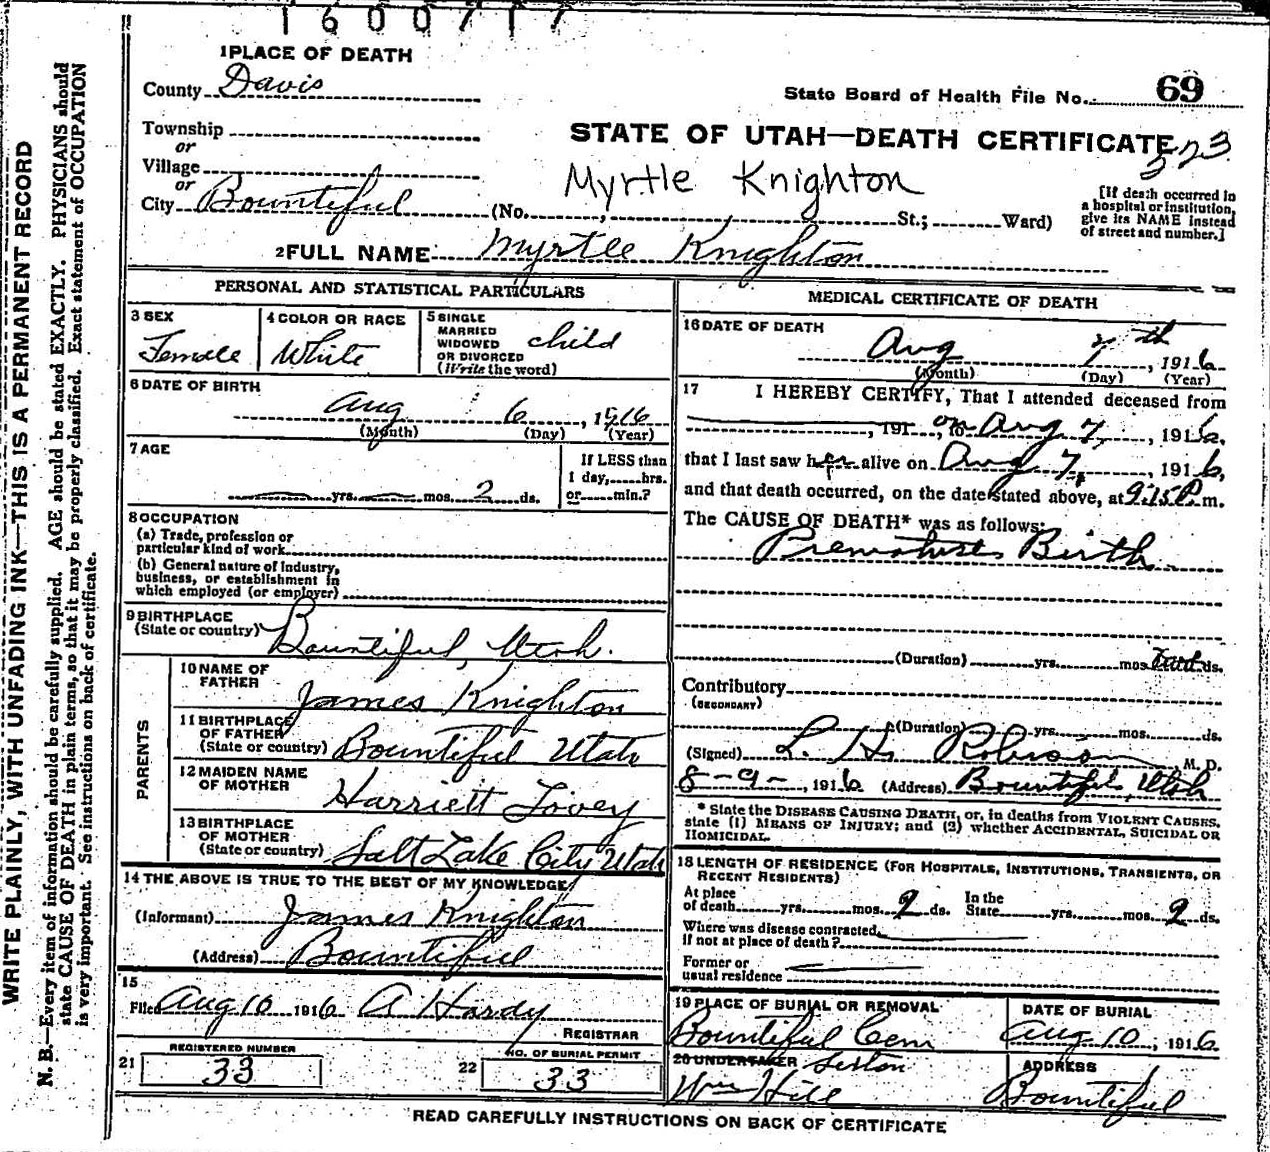 1600717
1 PLACE OF DEATH
County Davis
State Board of Health File No. 69
Township
or
STATE OF UTAH—DEATH CERTIFICATE
323
Village
or
Myrtle Knighton
City Bountiful (No. , St.; Ward)
[If death occurred in
a hospital or institution,
give its NAME instead
of street and number.]
2 FULL NAME Myrtle Knighton
PERSONAL AND STATISTICAL PARTICULARS
3 SEX
Female
4 COLOR OR RACE
White
5 SINGLE
MARRIED
WIDOWED
OR DIVORCED
(Write the word)
child
6 DATE OF BIRTH
Aug 6, 1916
(Month) (Day) (Year)
7 AGE
yrs. mos. 2 ds.
If LESS than
1 day, hrs.
or min.?
8 OCCUPATION
(a) Trade, profession or
particular kind of work
(b) General nature of industry,
business, or establishment in
which employed (or employer)
9 BIRTHPLACE
(State or country) Bountiful, Utah.
PARENTS
10 NAME OF
FATHER James Knighton
11 BIRTHPLACE
OF FATHER
(State or country) Bountiful Utah
12 MAIDEN NAME
OF MOTHER Harriett Tovey
13 BIRTHPLACE
OF MOTHER
(State or country) Salt Lake City Utah
14 THE ABOVE IS TRUE TO THE BEST OF MY KNOWLEDGE
(Informant) James Knighton
(Address) Bountiful
15
Filed Aug 10 1916 A Hardy
REGISTRAR
21 REGISTERED NUMBER
33
22 NO. OF BURIAL PERMIT
33
MEDICAL CERTIFICATE OF DEATH
16 DATE OF DEATH
Aug 7th, 1916
(Month) (Day) (Year)
17 I HEREBY CERTIFY, That I attended deceased from
, 191 , to on Aug 7, 1916,
that I last saw her alive on Aug 7, 1916,
and that death occurred, on the date stated above, at 9:15 P. m.
The CAUSE OF DEATH* was as follows:
Premature Birth
(Duration) yrs. mos. ds.
Contributory
(SECONDARY)
(Duration) yrs. mos. ds.
(Signed) L. H. Robison, M. D.
8-9-, 1916 (Address) Bountiful, Utah
* State the DISEASE CAUSING DEATH, or, in deaths from VIOLENT CAUSES,
state (1) MEANS OF INJURY; and (2) whether ACCIDENTAL, SUICIDAL OR
HOMICIDAL.
18 LENGTH OF RESIDENCE (FOR HOSPITALS, INSTITUTIONS, TRANSIENTS, OR
RECENT RESIDENTS)
At place
of death yrs. mos. 2 ds. In the
State yrs. mos. 2 ds.
Where was disease contracted,
if not at place of death?
Former or
usual residence
19 PLACE OF BURIAL OR REMOVAL
Bountiful Cem
DATE OF BURIAL
Aug 10, 1916
20 UNDERTAKER Sexton
Wm Hill
ADDRESS
Bountiful
READ CAREFULLY INSTRUCTIONS ON BACK OF CERTIFICATE
WRITE PLAINLY, WITH UNFADING INK—THIS IS A PERMANENT RECORD
N. B.—Every item of information should be carefully supplied. AGE should be stated EXACTLY. PHYSICIANS should
state CAUSE OF DEATH in plain terms, so that it may be properly classified. Exact statement of OCCUPATION
is very important. See instructions on back of certificate.